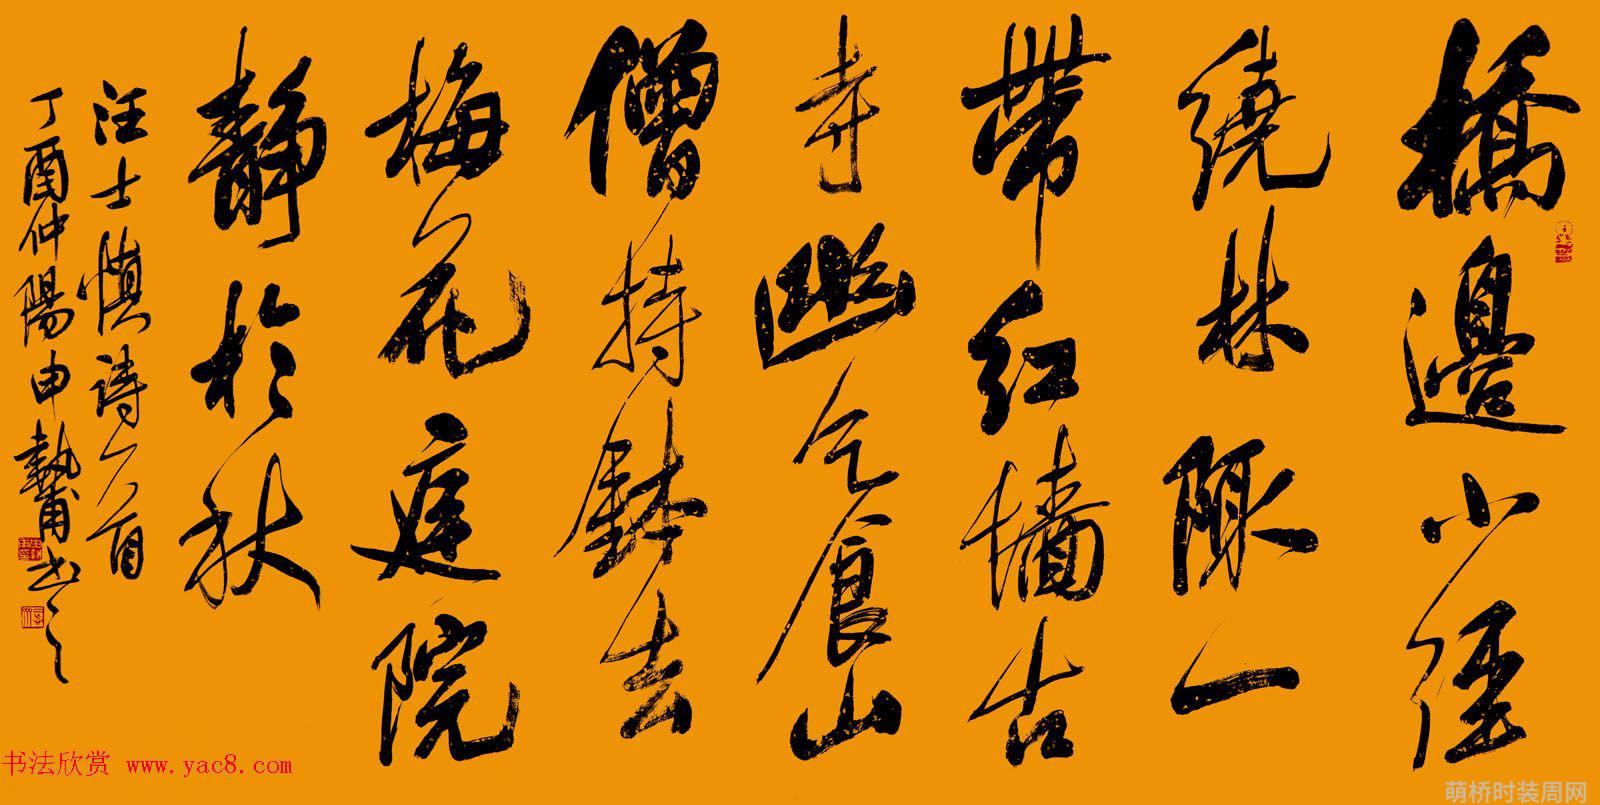 橋邊小徑
繞林陬一
帶紅墻古
寺幽乞食山
僧持鉢去
梅花庭院
靜於秋
汪士慎詩一首
丁酉仲陽申
書法欣赏 www.yac8.com
萌桥时装周网